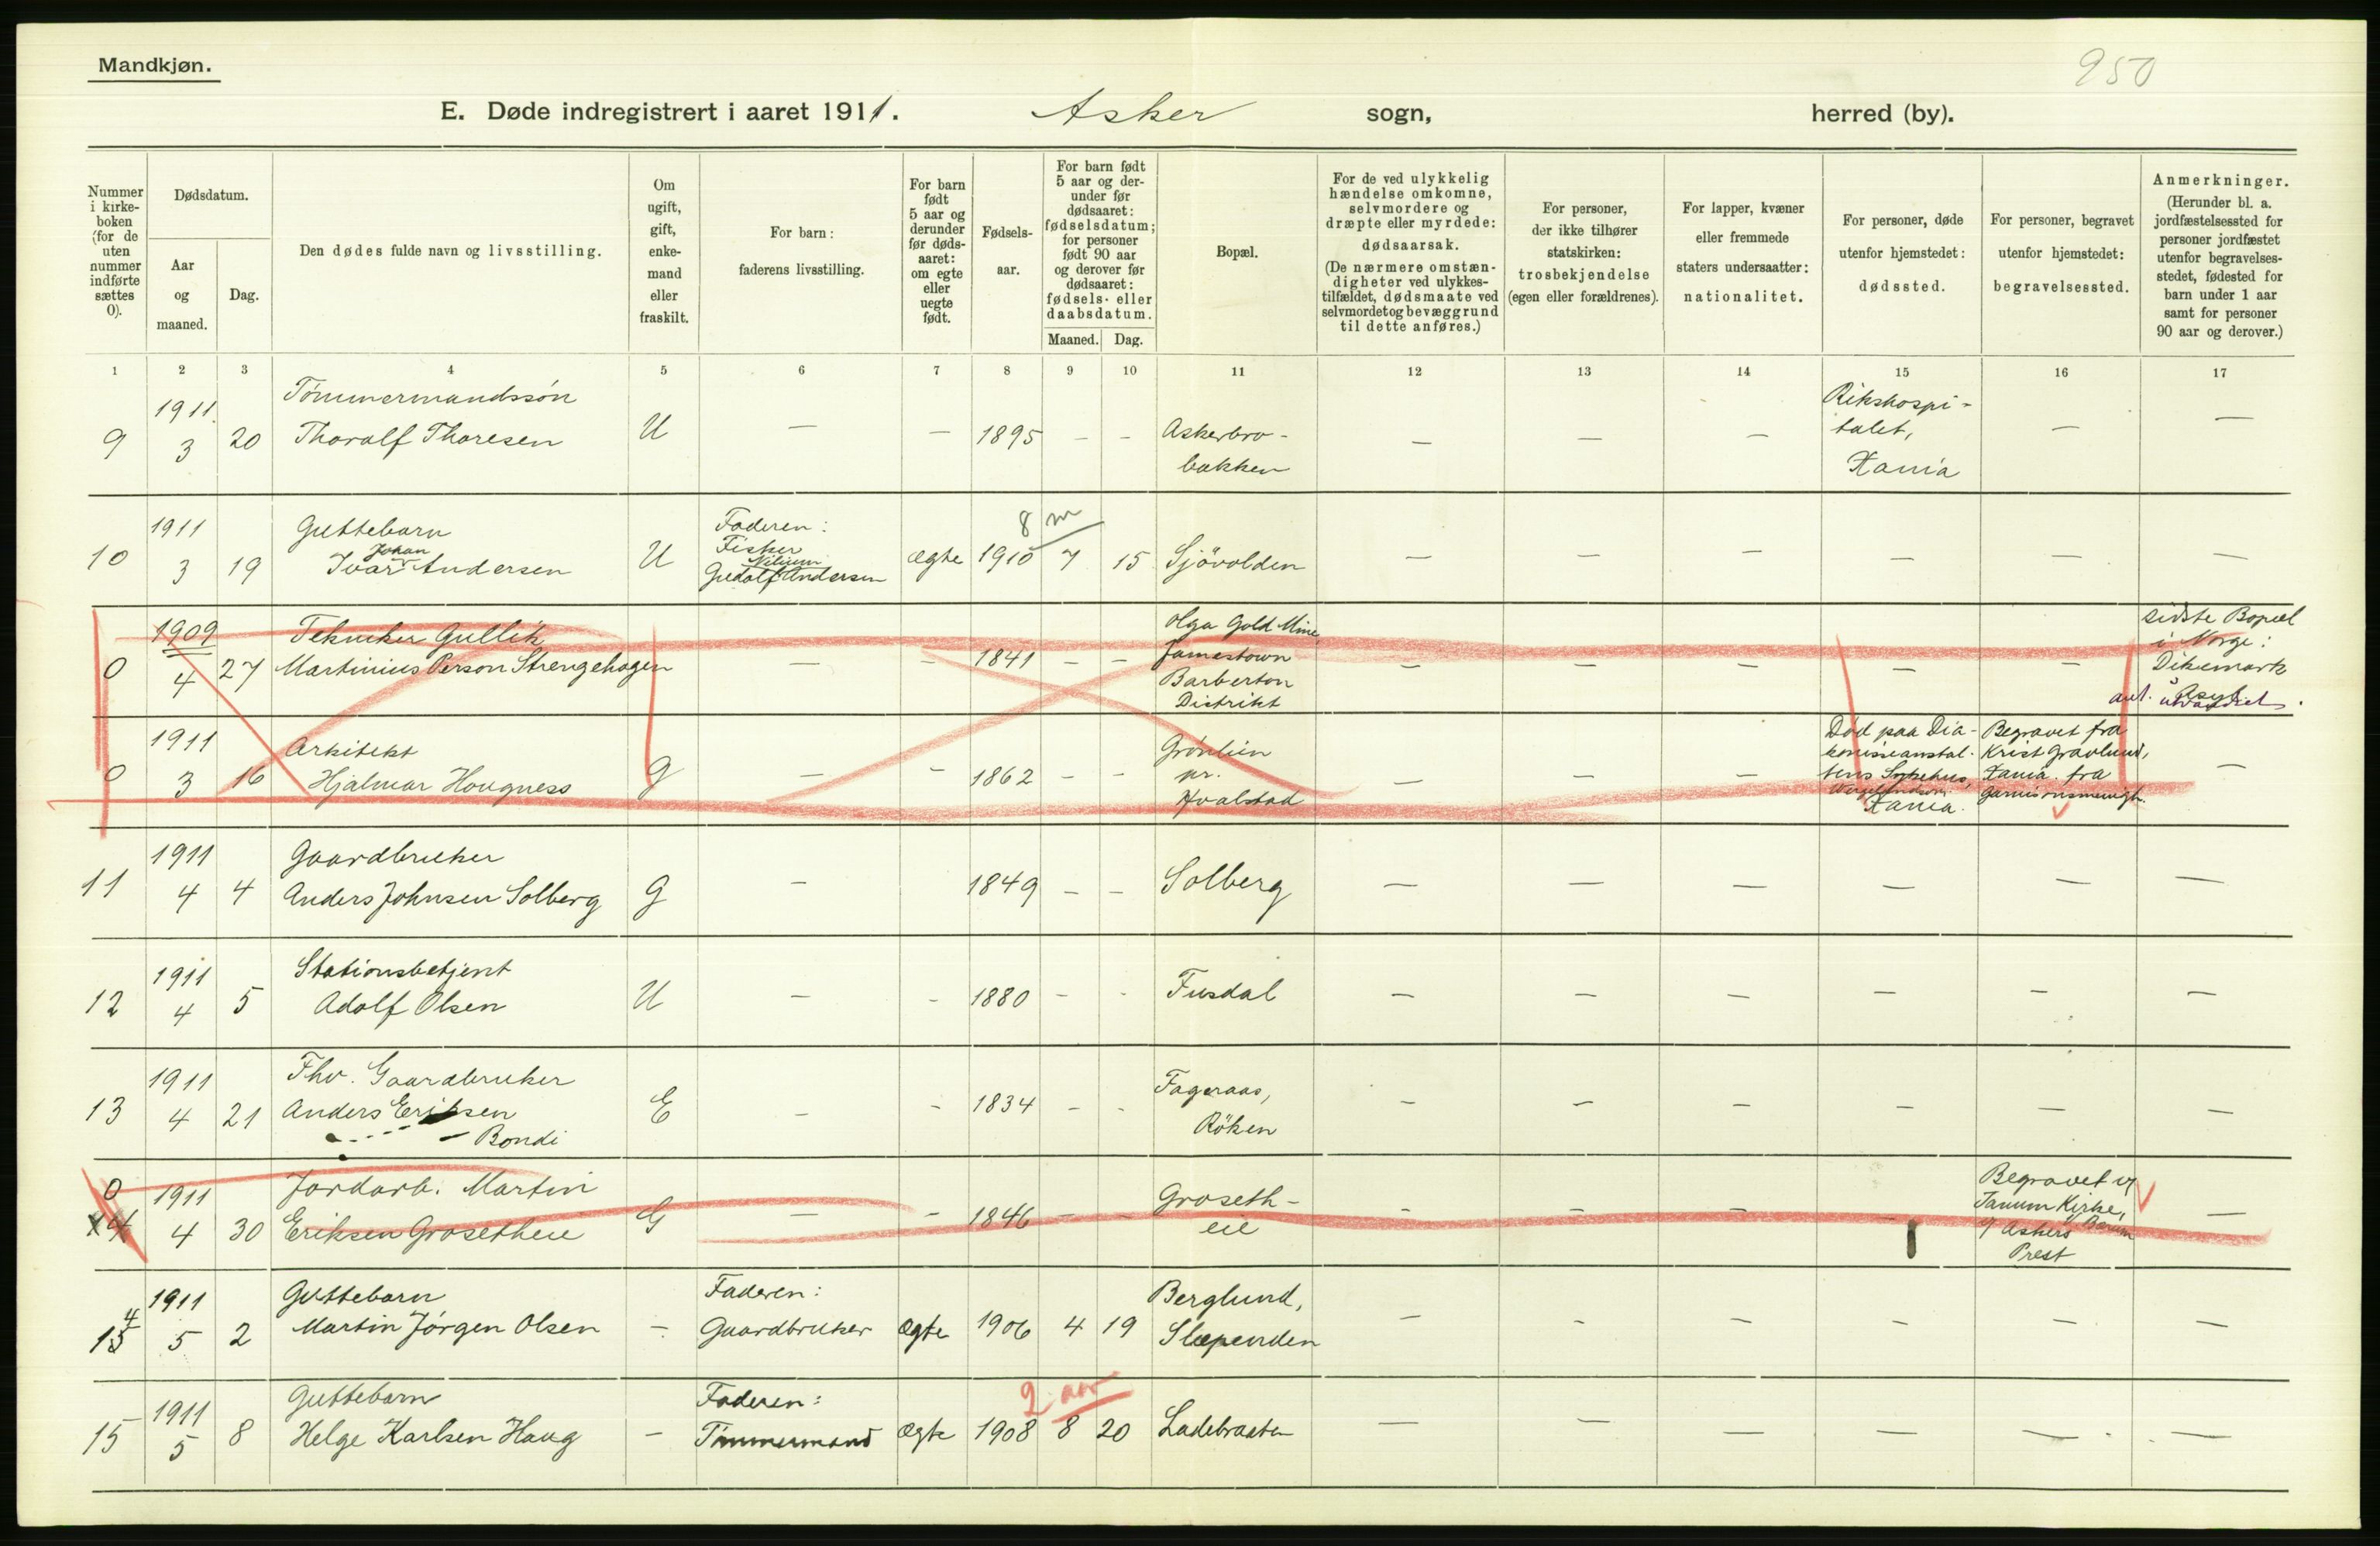 Mandkjøn.
950
E. Døde indregistrert i aaret 1911. Asker sogn, herred (by).
Nummer i kirke-boken (for de uten nummer indførte sættes 0).
Dødsdatum.
Aar og maaned.
Dag.
Den dødes fulde navn og livsstilling.
Om ugift, gift, enke-mand eller fraskilt.
For barn: faderens livsstilling.
For barn født 5 aar og derunder før døds-aaret: om egte eller uegte født.
Fødsels-aar.
For barn født 5 aar og der-under før dødsaaret: fødselsdatum; for personer født 90 aar og derover før dødsaaret: fødsels- eller daabsdatum.
Maaned. Dag.
Bopæl.
For de ved ulykkelig hændelse omkomne, selvmordere og dræpte eller myrdede: dødsaarsak. (De nærmere omstæn-digheter ved ulykkes-tilfældet, dødsmaate ved selvmordet og bevæggrund til dette anføres.)
For personer, der ikke tilhører statskirken: trosbekjendelse (egen eller forældrenes).
For lapper, kvæner eller fremmede staters undersaatter: nationalitet.
For personer, døde utenfor hjemstedet: dødssted.
For personer, begravet utenfor hjemstedet: begravelsessted.
Anmerkninger. (Herunder bl. a. jordfæstelsessted for personer jordfæstet utenfor begravelses-stedet, fødested for barn under 1 aar samt for personer 90 aar og derover.)
1 2 3 4 5 6 7 8 9 10 11 12 13 14 15 16 17
9 1911 3 20 Tömmermandssön Thoralf Thoresen U — — 1895 - - Askerbro-bakken — — — Rikshospi-talet, Xania — —
10 1911 3 19 Guttebarn Ivar Johan Andersen U Faderen: Fisker Andersen ægte 1910 8 m 7 15 Sjövolden — — — — — —
0 1909 4 27 Tekniker Gullik Martinius Person Strengehagen — - 1841 - - Olga Gold Mine Jamestown Barberton Distrikt — — — — — sidste Bopæl i Norge: Dikemark Asyl
0 1911 3 16 Arkitekt Hjalmar Hougness g — - 1862 - - Grönlien pr. Hvalstad — — — Död paa Dia-konisseanstal-tens Sykehus, Xania. Begravet fra Krist Gravlund, Xania. fra Garnisonsmenigh. —
11 1911 4 4 Gaardbruker Anders Johnsen Solberg g — 1849 - - Solberg — — — — — —
12 1911 4 5 Stationsbetjent Adolf Olsen U — - 1880 - - Fusdal — — — — — —
13 1911 4 21 Fhv. Gaardbruker Anders Eriksen Bondi E — - 1834 - - Fageraas, Röken — — — — — —
0 14 1911 4 30 Jordarb. Martin Eriksen Grosetheie G — - 1846 - - Groseth-eie - - - Begravet v/ Tanum Kirke, Bærum af Askers Prest —
15 4 1911 5 2 Guttebarn Martin Jörgen Olsen — Faderen: Gaardbruker ægte 1906 4 19 Berglund, Slependen — — — — — —
15 1911 5 8 Guttebarn Helge Karlsen Haug — Faderen: Tömmermand ægte 1908 2 aar 8 20 Ladebraaten — — — — — —